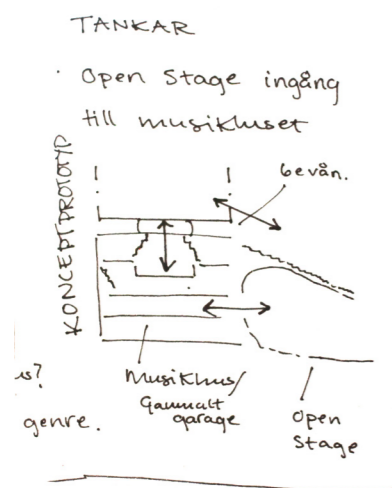 TANKAR
· Open Stage ingång
till musikhuset
KONCEPTPROTOTYP
bevån.
Musikhus/
Gammalt
garage
Open
Stage
genre.